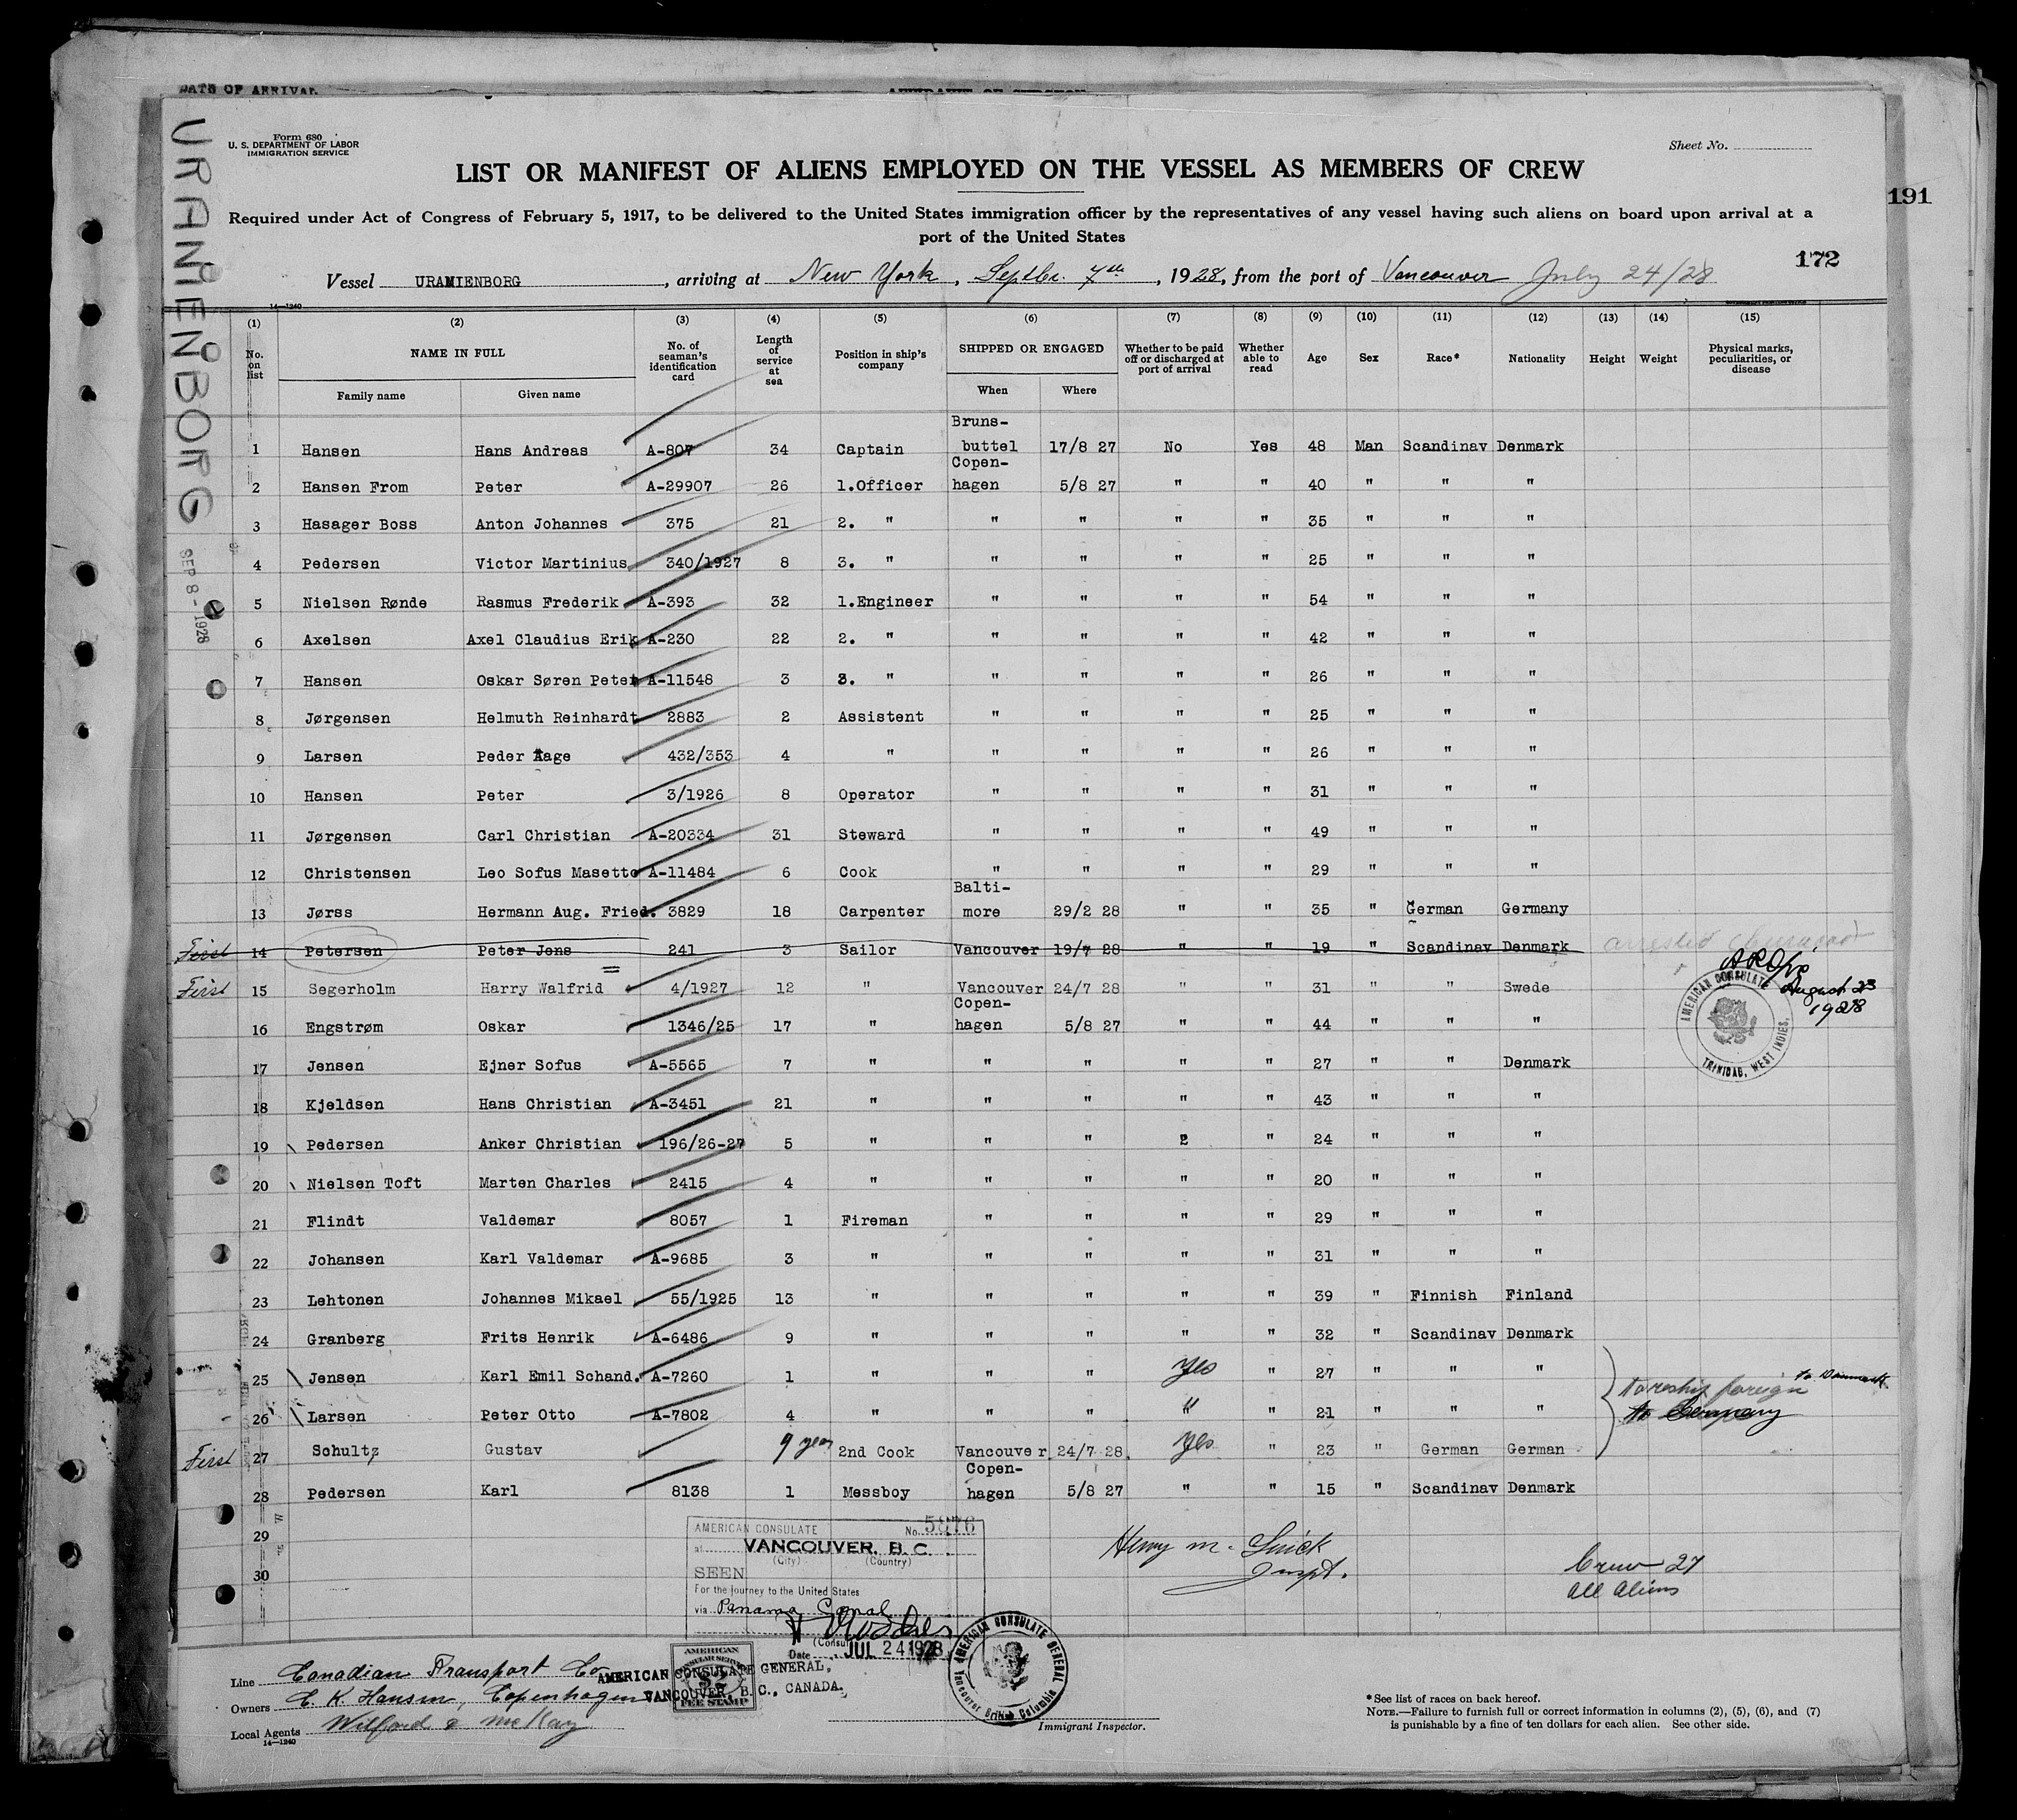 DATE OF ARRIVAL
Form 680
U. S. DEPARTMENT OF LABOR
IMMIGRATION SERVICE
Sheet No.
LIST OR MANIFEST OF ALIENS EMPLOYED ON THE VESSEL AS MEMBERS OF CREW
191
Required under Act of Congress of February 5, 1917, to be delivered to the United States immigration officer by the representatives of any vessel having such aliens on board upon arrival at a
port of the United States
172
Vessel URANIENBORG, arriving at New York, Septbr. 7th, 1928, from the port of Vancouver July 24/28
URANIENBORG
SEP 8-1928
14-1240
(1) (2) (3) (4) (5) (6) (7) (8) (9) (10) (11) (12) (13) (14) (15)
No. on list NAME IN FULL No. of seaman's identification card Length of service at sea Position in ship's company SHIPPED OR ENGAGED Whether to be paid off or discharged at port of arrival Whether able to read Age Sex Race* Nationality Height Weight Physical marks, peculiarities, or disease
Family name Given name When Where
1 Hansen Hans Andreas A-807 34 Captain Bruns-buttel 17/8 27 No Yes 48 Man Scandinav Denmark
2 Hansen From Peter A-29907 26 1.Officer Copen-hagen 5/8 27 " " 40 " " "
3 Hasager Boss Anton Johannes 375 21 2. " " " " " 35 " " "
4 Pedersen Victor Martinius 340/1927 8 3. " " " " " 25 " " "
5 Nielsen Rønde Rasmus Frederik A-393 32 1.Engineer " " " " 54 " " "
6 Axelsen Axel Claudius Erik A-230 22 2. " " " " " 42 " " "
7 Hansen Oskar Søren Peter A-11548 3 3. " " " " " 26 " " "
8 Jørgensen Helmuth Reinhardt 2883 2 Assistent " " " " 25 " " "
9 Larsen Peder Aage 432/353 4 " " " " " 26 " " "
10 Hansen Peter 3/1926 8 Operator " " " " 31 " " "
11 Jørgensen Carl Christian A-20334 31 Steward " " " " 49 " " "
12 Christensen Leo Sofus Masetto A-11484 6 Cook " " " " 29 " " "
13 Jørss Hermann Aug. Fried. 3829 18 Carpenter Balti-more 29/2 28 " " 35 " German Germany
First 14 Petersen Peter Jens 241 3 Sailor Vancouver 19/7 28 " " 19 " Scandinav Denmark arrested
First 15 Segerholm Harry Walfrid 4/1927 12 " Vancouver 24/7 28 " " 31 " " Swede
August 23
1928
AMERICAN CONSULATE
TRINIDAD, WEST INDIES.
16 Engstrøm Oskar 1346/25 17 " Copen-hagen 5/8 27 " " 44 " " "
17 Jensen Ejner Sofus A-5565 7 " " " " " 27 " " Denmark
18 Kjeldsen Hans Christian A-3451 21 " " " " " 43 " " "
19 Pedersen Anker Christian 196/26-27 5 " " " " " 24 " " "
20 Nielsen Toft Marten Charles 2415 4 " " " " " 20 " " "
21 Flindt Valdemar 8057 1 Fireman " " " " 29 " " "
22 Johansen Karl Valdemar A-9685 3 " " " " " 31 " " "
23 Lehtonen Johannes Mikael 55/1925 13 " " " " " 39 " Finnish Finland
24 Granberg Frits Henrik A-6486 9 " " " " " 32 " Scandinav Denmark
25 Jensen Karl Emil Schand. A-7260 1 " " " Yes " 27 " " "
to reship foreign to Denmark
26 Larsen Peter Otto A-7802 4 " " " " " 21 " " "
to Germany
First 27 Schultz Gustav 9 year 2nd Cook Vancouver 24/7 28. Yes " 23 " German German
28 Pedersen Karl 8138 1 Messboy Copen-hagen 5/8 27 " " 15 " Scandinav Denmark
29
30
AMERICAN CONSULATE No. 5976
at VANCOUVER, B. C.
(City) (Country)
SEEN
For the journey to the United States
via Panama Canal
(Consul)
Date JUL 24 1928
Henry M.
Inspt.
Crew 27
All Aliens
AMERICAN CONSULATE GENERAL
Vancouver British Columbia
AMERICAN
CONSULAR SERVICE
$2
FEE STAMP
AMERICAN CONSULATE GENERAL,
VANCOUVER, B. C., CANADA.
Line Canadian Transport Co
Owners C. K. Hansen, Copenhagen
Local Agents Wilford & McKay
14-1240
Immigrant Inspector.
*See list of races on back hereof.
NOTE.—Failure to furnish full or correct information in columns (2), (5), (6), and (7)
is punishable by a fine of ten dollars for each alien. See other side.